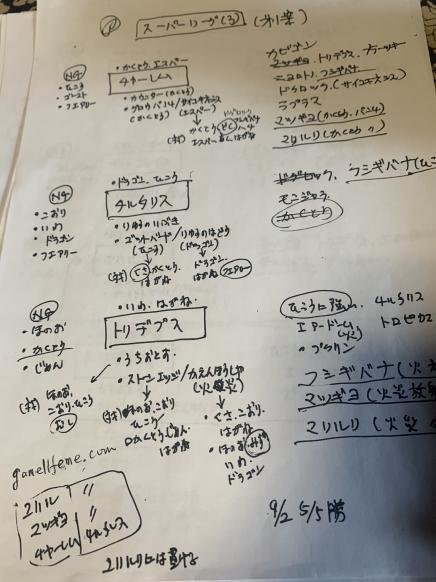 スーパーリーグ(3)
NG
・ひこう
・ゴースト
・フェアリー
・かくとう、エスパー
チャーレム
・カウンター(かくとう)
・グロウパンチ/サイコキネシス
(かくとう) (エスパー)
カビゴン
マッギョ、トリデプス、ブラッキー
ニョロトノ、フシギバナ
ドクロッグ、(サイコキネシス)
ラプラス
マッギョ(かくとう、パンチ)
マリルリ(かくとう 〃)
NG
・こおり
・いわ
・ドラゴン
・フェアリー
・ドラゴン、ひこう
チルタリス
・りゅうのいぶき
・ゴッドバード/りゅうのはどう
(ひこう) (ドラゴン)
くさ、かくとう、
ドラゴン
はがね フェアリー
フシギバナ(ひ
モンジャラ
NG
・ほのお
・かくとう
・じめん
・いわ、はがね
トリデプス
・うちおとす
・ストーンエッジ/かえんほうしゃ
ほのお、
こおり、ひこう
むし
ひこう
かくとうじめん
はがね
・くさ、こおり、
はがね
・ほのお、みず
いわ、
ドラゴン
ひこうに強い、チルタリス
エアームド トロピウス
・プクリン
フシギバナ(火
マッギョ(火炎放射
マリルリ(火炎
gamelifeme.com
マリル 〃
マッギョ 〃
チャーレム チルタリス
9/2 5/5 勝